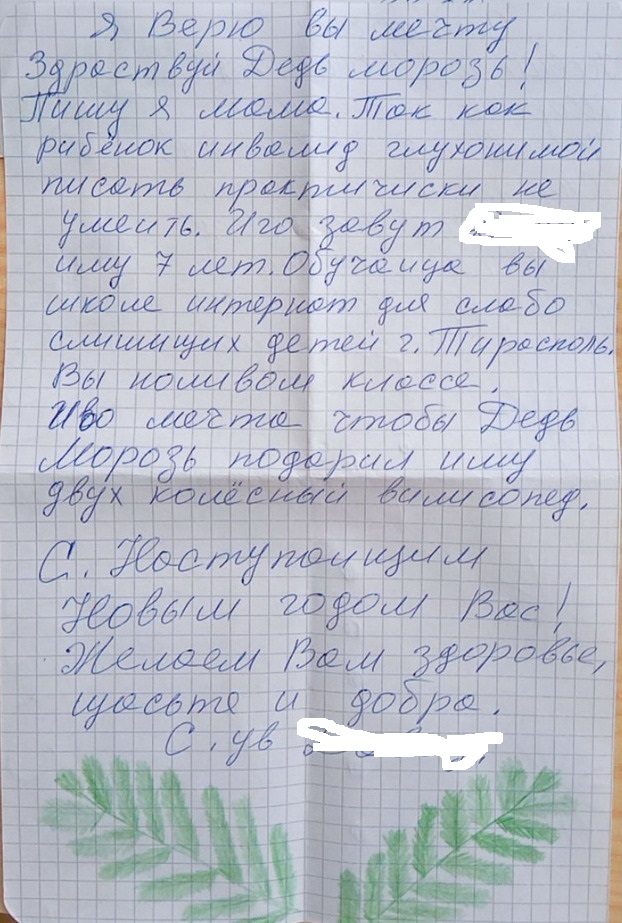 Я Верю вы мечту
Здраствуй Дедь морозь!
Пишу я мама. Так как
рибёнок инвалид глухонимой
писать практичиски не
умеить. Иго завут
иму 7 лет. Обучаица вы
школе интернат для слабо
слишищих детей г. Тирасполь.
Выноливом классе.
Иво мечта чтобы Дедь
Морозь подарил иму
двух колёсный вилисопед.
С. Наступаищим
Новым годом Вас!
Желаем Вам здоровье,
щасьте и добра.
С. ув